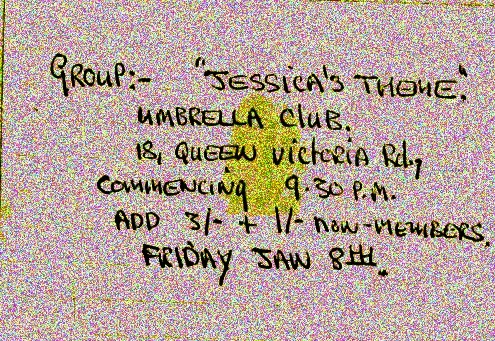 GROUP:- "JESSICA'S THEME."
UMBRELLA CLUB.
18, QUEEN VICTORIA Rd.,
COMMENCING 9.30 P.M.
ADD 3/- + 1/- NON-MEMBERS.
FRIDAY JAN 8TH.